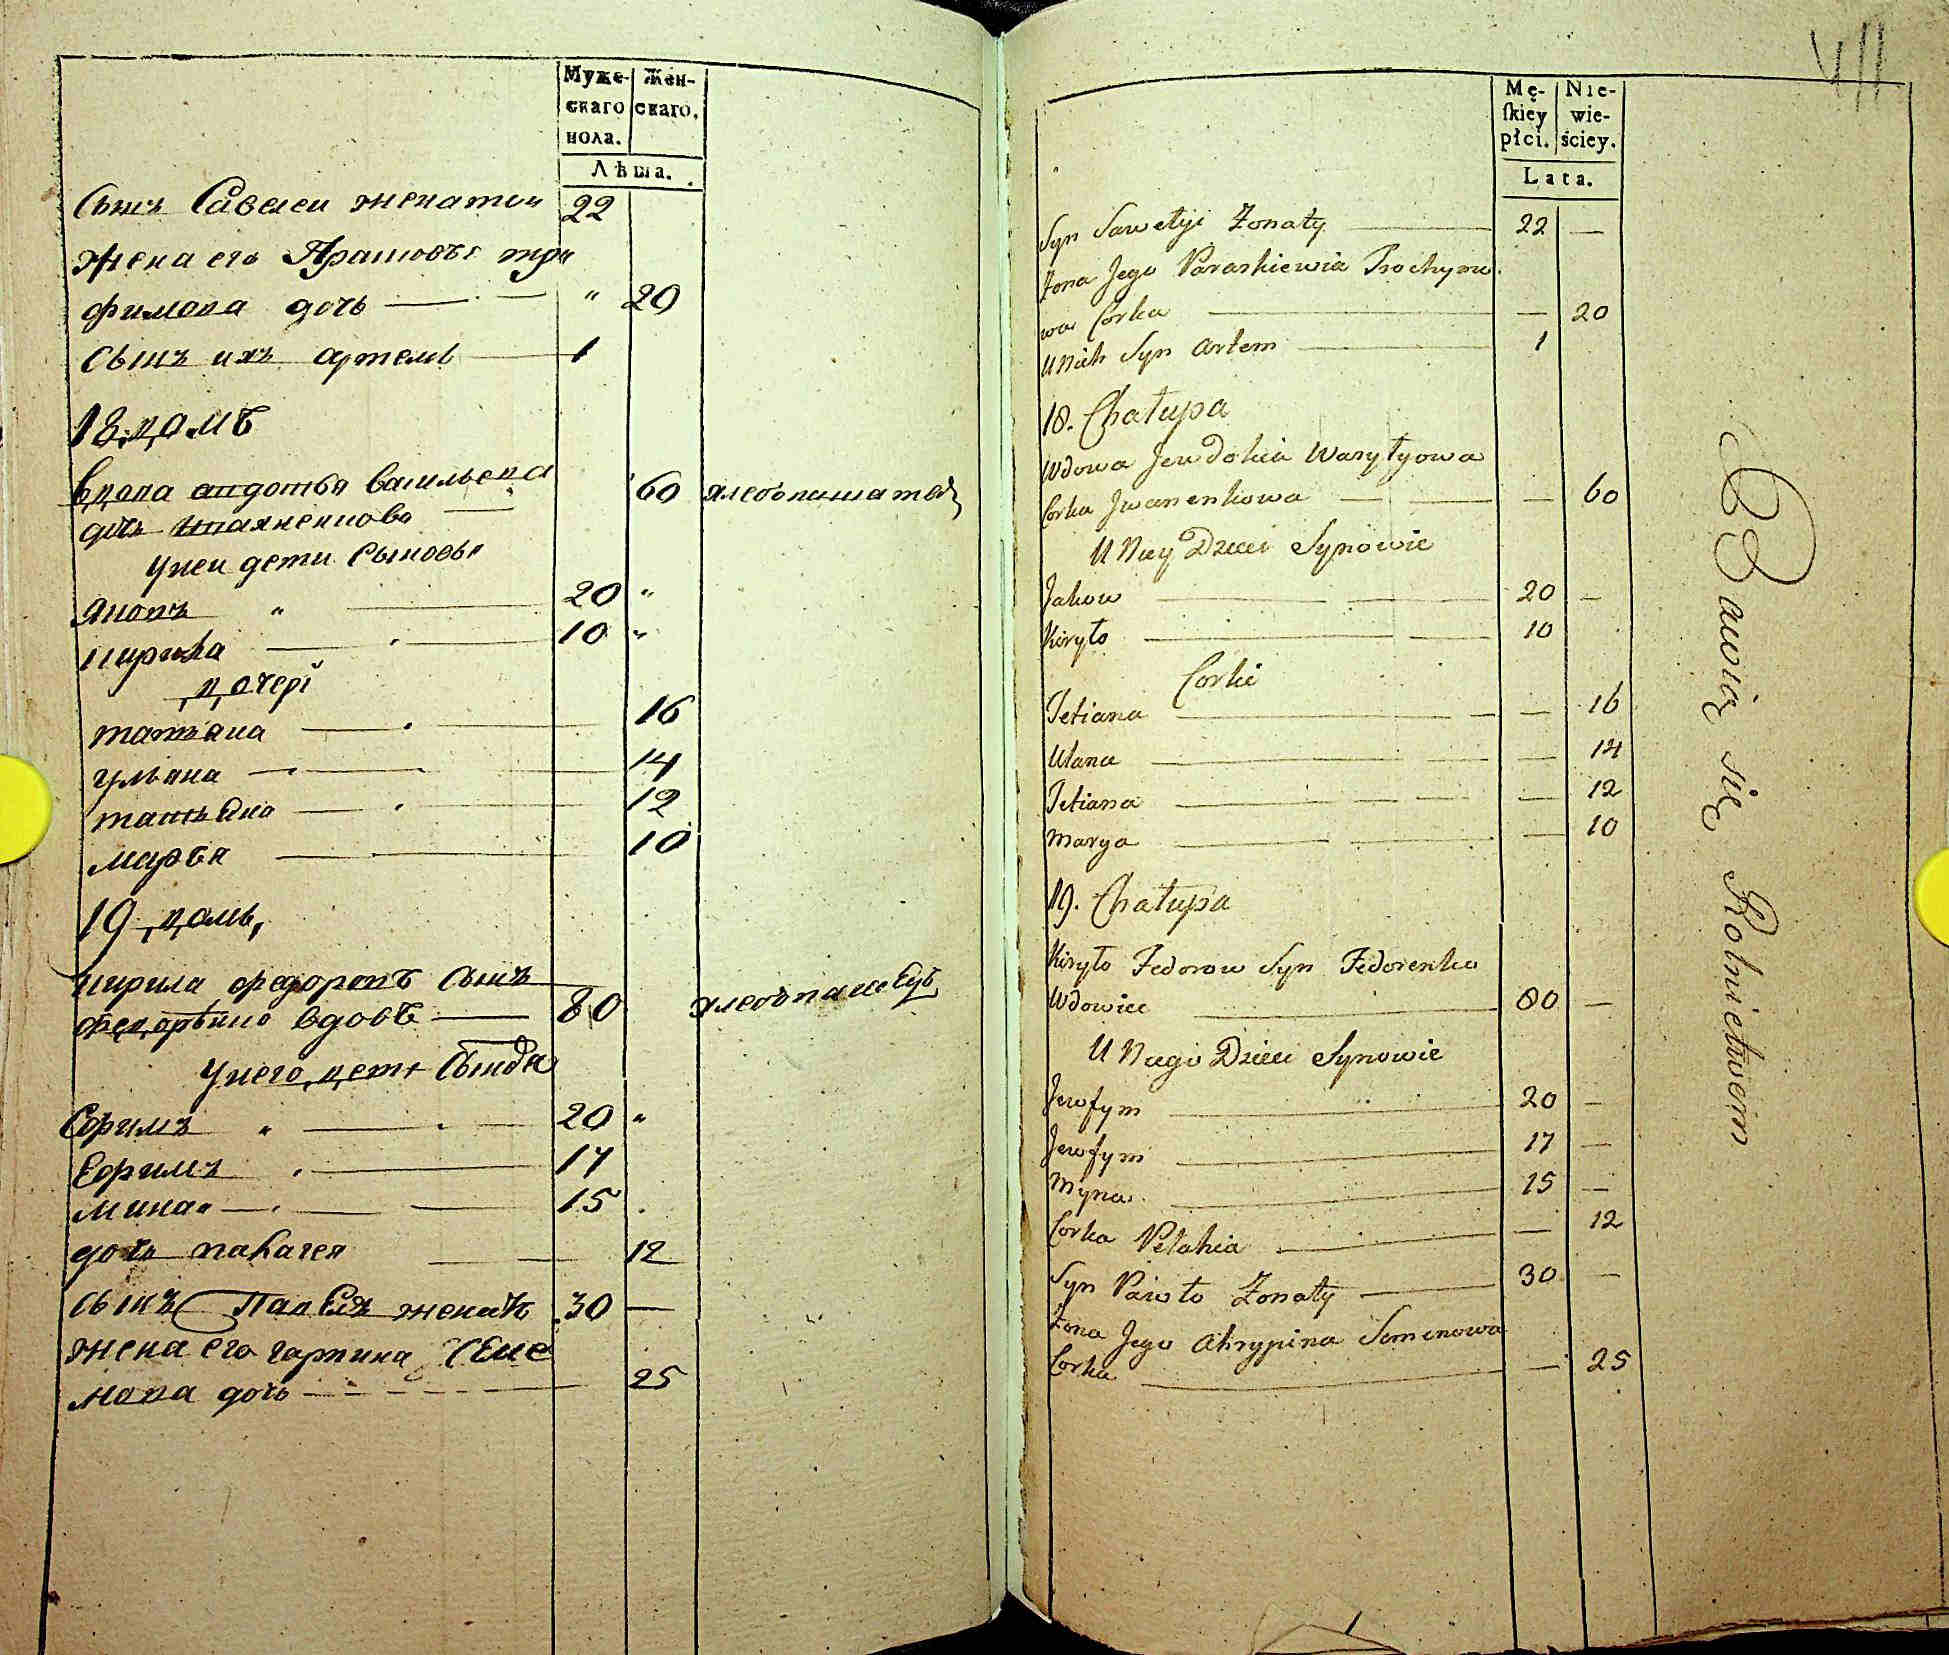 Муже- Жен-
скаго скаго.
пола.
Лѣта.
Сынъ Савелеи женатои 22
жена его Прасковья тро
фимова дочь — " 20
сынъ ихъ артемъ — 1
18. домъ
вдова авдотья васильева 60 хлебопашатва
дочь иваненкова —
унеи дети Сыновья
яковъ " — 20 "
кирила — 10 "
дочери
татьяна — 16
ульяна — 14
татьяна — 12
марья — 10
19 домъ,
кирила федоровъ сынъ
федоренко вдовъ — 80 хлебопашецъ
унего дети Сыновя
Ефимъ " — 20 "
Ефимъ — 17
мина — 15
дочь палагея — 12
сынъ Павелъ женатъ 30 —
жена его гарпина Семе
нова дочь — 25
411
Mę- Nie-
ſkiey wie-
płci. ściey.
Lata.
Syn Sawełyi Żonaty — 22 —
Żona Jego Paraskiewia Trochymo
wa Corka — — 20
U Nich Syn Artem — 1
18. Chałupa
Wdowa Jewdokia Wasyłyowa
Corka Jwanenkowa — — 60
U Niey Dzieci Synowie
Jakow — 20 —
Kiryło — 10
Corki
Tetiana — — 16
Ulana — — 14
Tetiana — — 12
Marya — — 10
19. Chałupa
Kiryło Fedorow Syn Fedorenko
Wdowiec — 80 —
U Niego Dzieci Synowie
Jewfym — 20 —
Jewfym — 17 —
Myna — 15 —
Corka Pelahia — — 12
Syn Pawło Żonaty — 30 —
Żona Jego Ahrypina Semenowa
Corka — — 25
Bawią się Rolnictwem